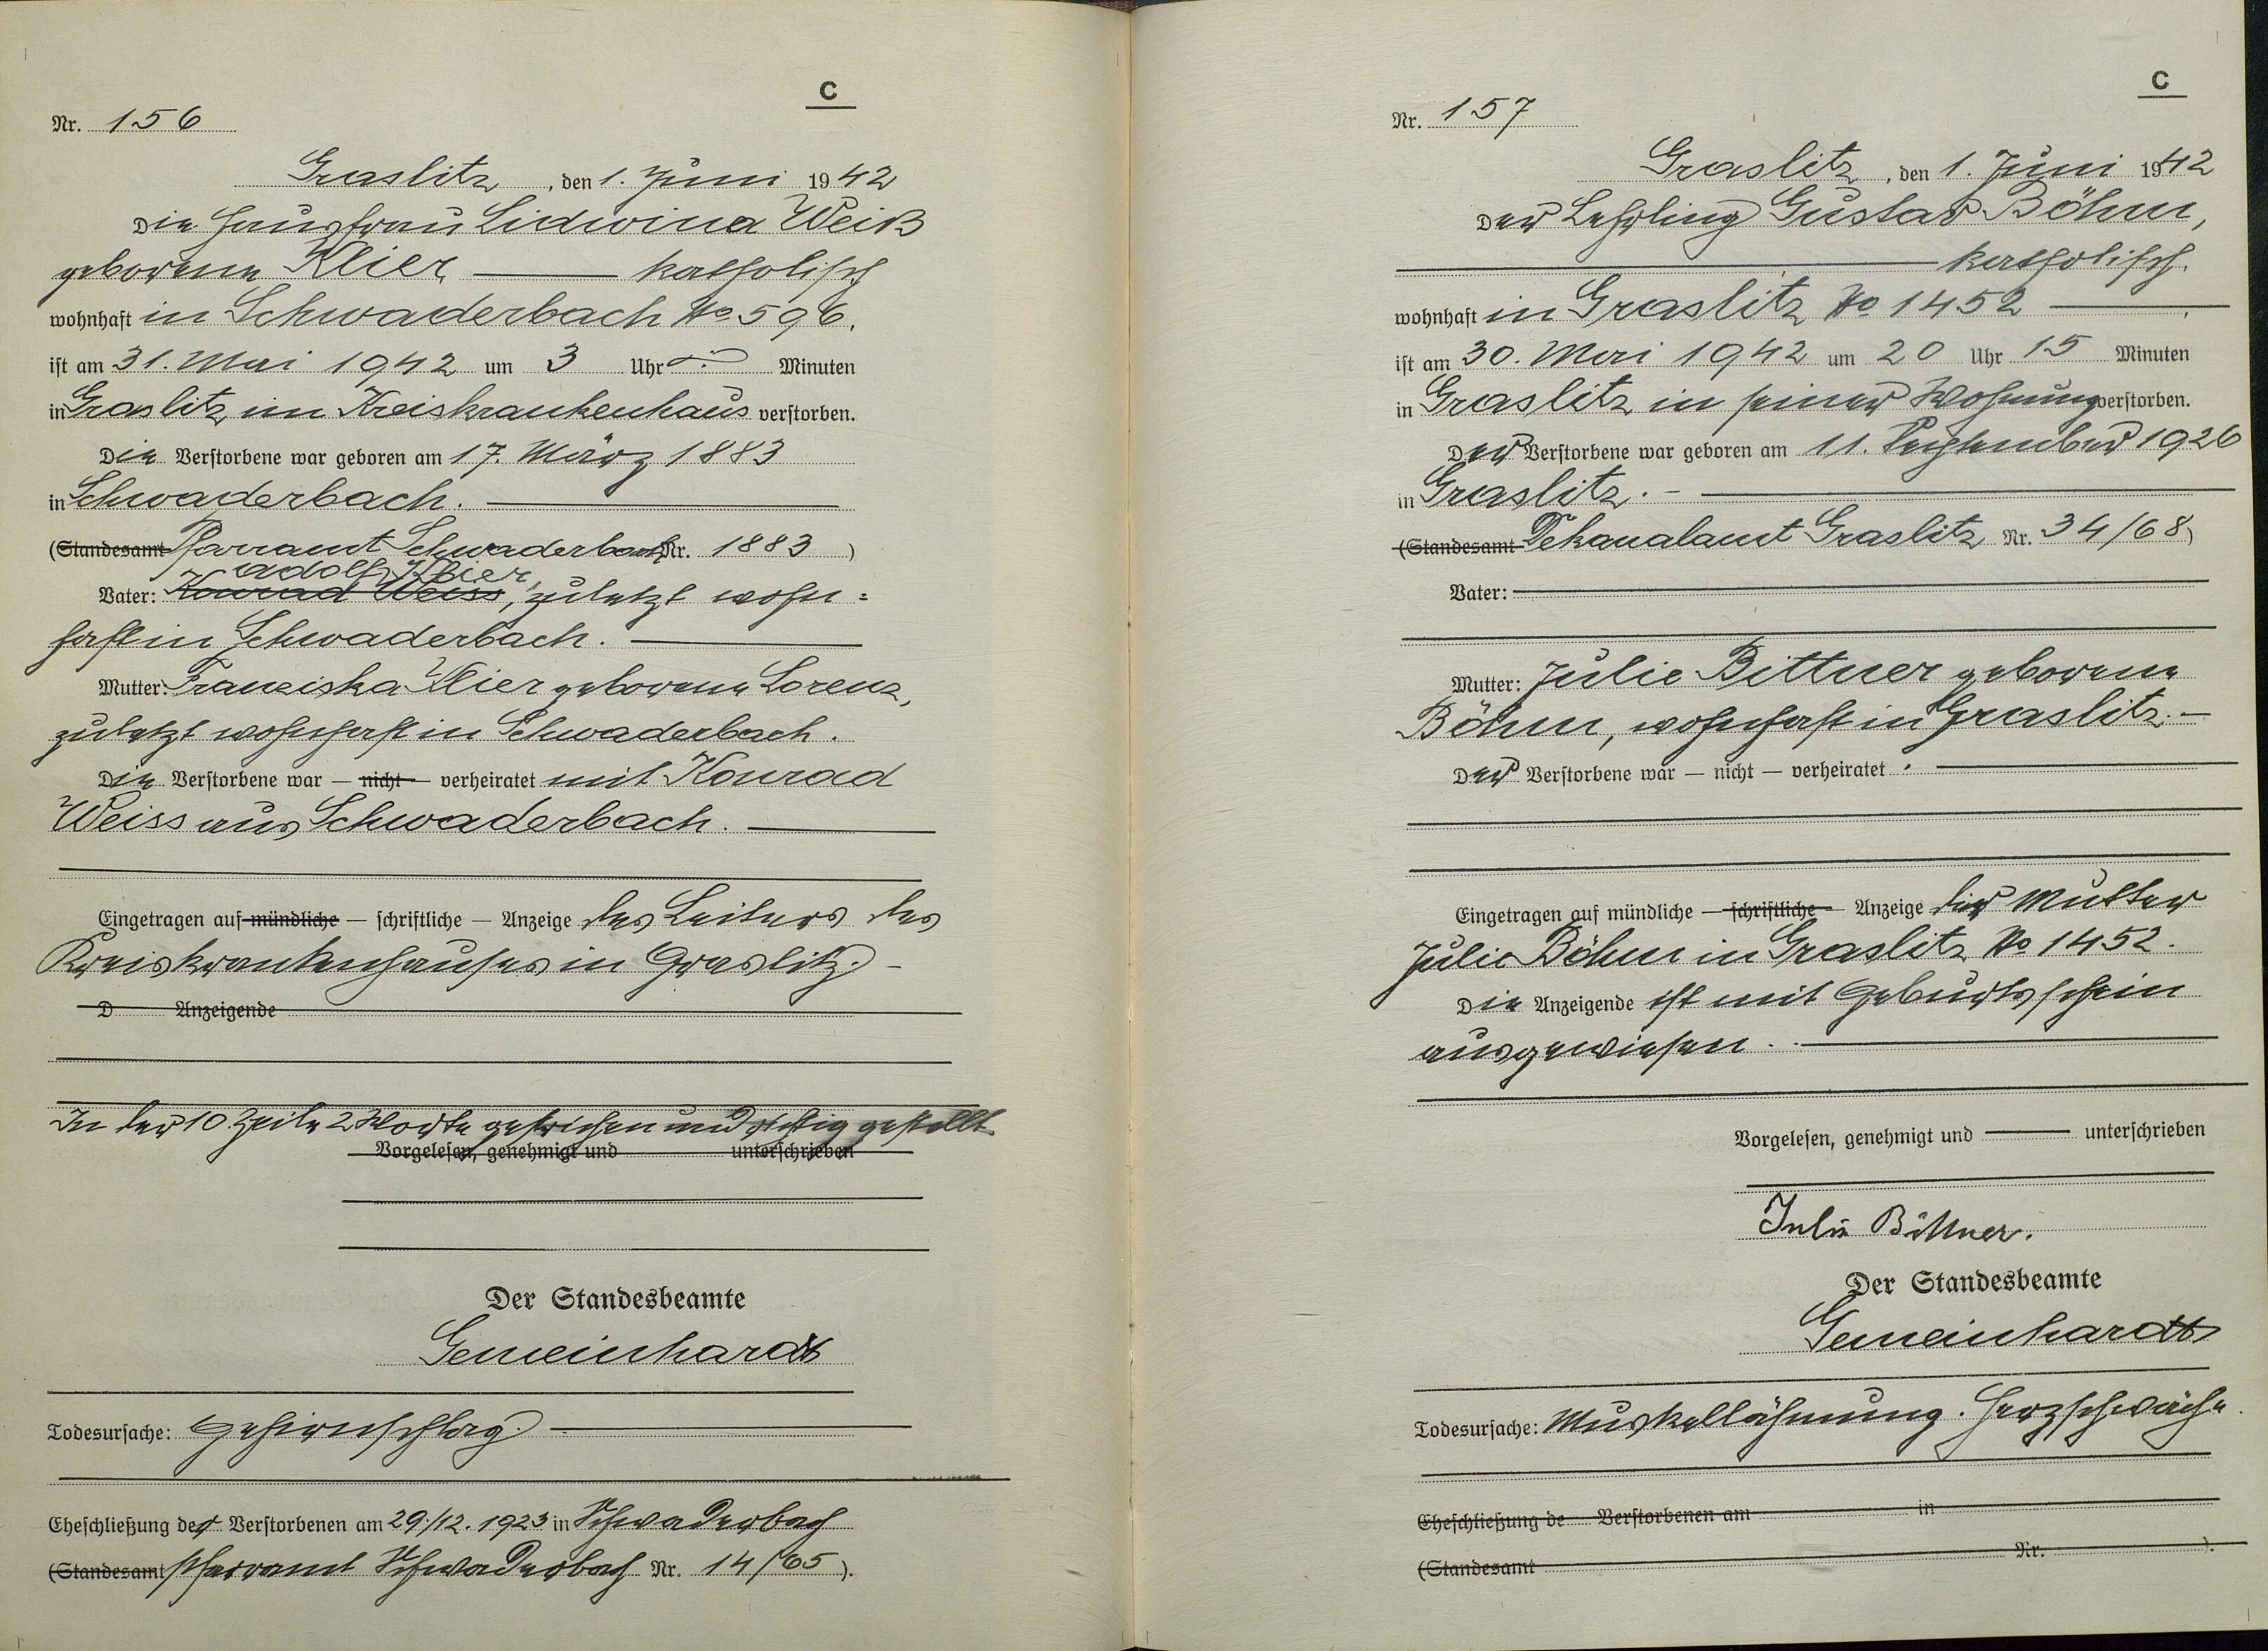 C
Nr. 156
Graslitz, den 1. Juni 1942
Die Hausfrau Lidwina Weiß
geborene Klier — katholisch
wohnhaft in Schwaderbach No 596,
ist am 31. Mai 1942 um 3 Uhr — Minuten
in Graslitz im Kreiskrankenhaus verstorben.
Die Verstorbene war geboren am 17. März 1883
in Schwaderbach. —
(Standesamt Pfarramt Schwaderbach Nr. 1883)
Adolf Klier,
Vater: Konrad Weiss, zuletzt wohn=
haft in Schwaderbach. —
Mutter: Franziska Klier geborene Lorenz,
zuletzt wohnhaft in Schwaderbach.
Die Verstorbene war — nicht — verheiratet mit Konrad
Weiss aus Schwaderbach. —
Eingetragen auf mündliche — schriftliche — Anzeige des Leiters des
Kreiskrankenhauses in Graslitz. —
D Anzeigende
In der 10. Zeile 2 Worte gestrichen und richtig gestellt
Vorgelesen, genehmigt und unterschrieben
Der Standesbeamte
Gemeinhardt
Todesursache: Gehirnschlag. —
Eheschließung der Verstorbenen am 29./12. 1923 in Schwaderbach
(Standesamt Pfarramt Schwaderbach Nr. 14/65).
C
Nr. 157
Graslitz, den 1. Juni 1942
Der Lehrling Gustav Böhm,
— katholisch,
wohnhaft in Graslitz No 1452 —,
ist am 30. Mai 1942 um 20 Uhr 15 Minuten
in Graslitz in seiner Wohnung verstorben.
Der Verstorbene war geboren am 11. September 1926
in Graslitz. —
(Standesamt Dekanalamt Graslitz Nr. 34/68)
Vater: —
Mutter: Julie Bittner geborene
Böhm, wohnhaft in Graslitz. —
Der Verstorbene war — nicht — verheiratet. —
Eingetragen auf mündliche — schriftliche — Anzeige der Mutter
Julie Böhm in Graslitz No 1452.
Die Anzeigende ist mit Geburtsschein
ausgewiesen. —
Vorgelesen, genehmigt und — unterschrieben
Julie Bittner.
Der Standesbeamte
Gemeinhardt
Todesursache: Muskellähmung. Herzschwäche.
Eheschließung de Verstorbenen am in
(Standesamt Nr. ).